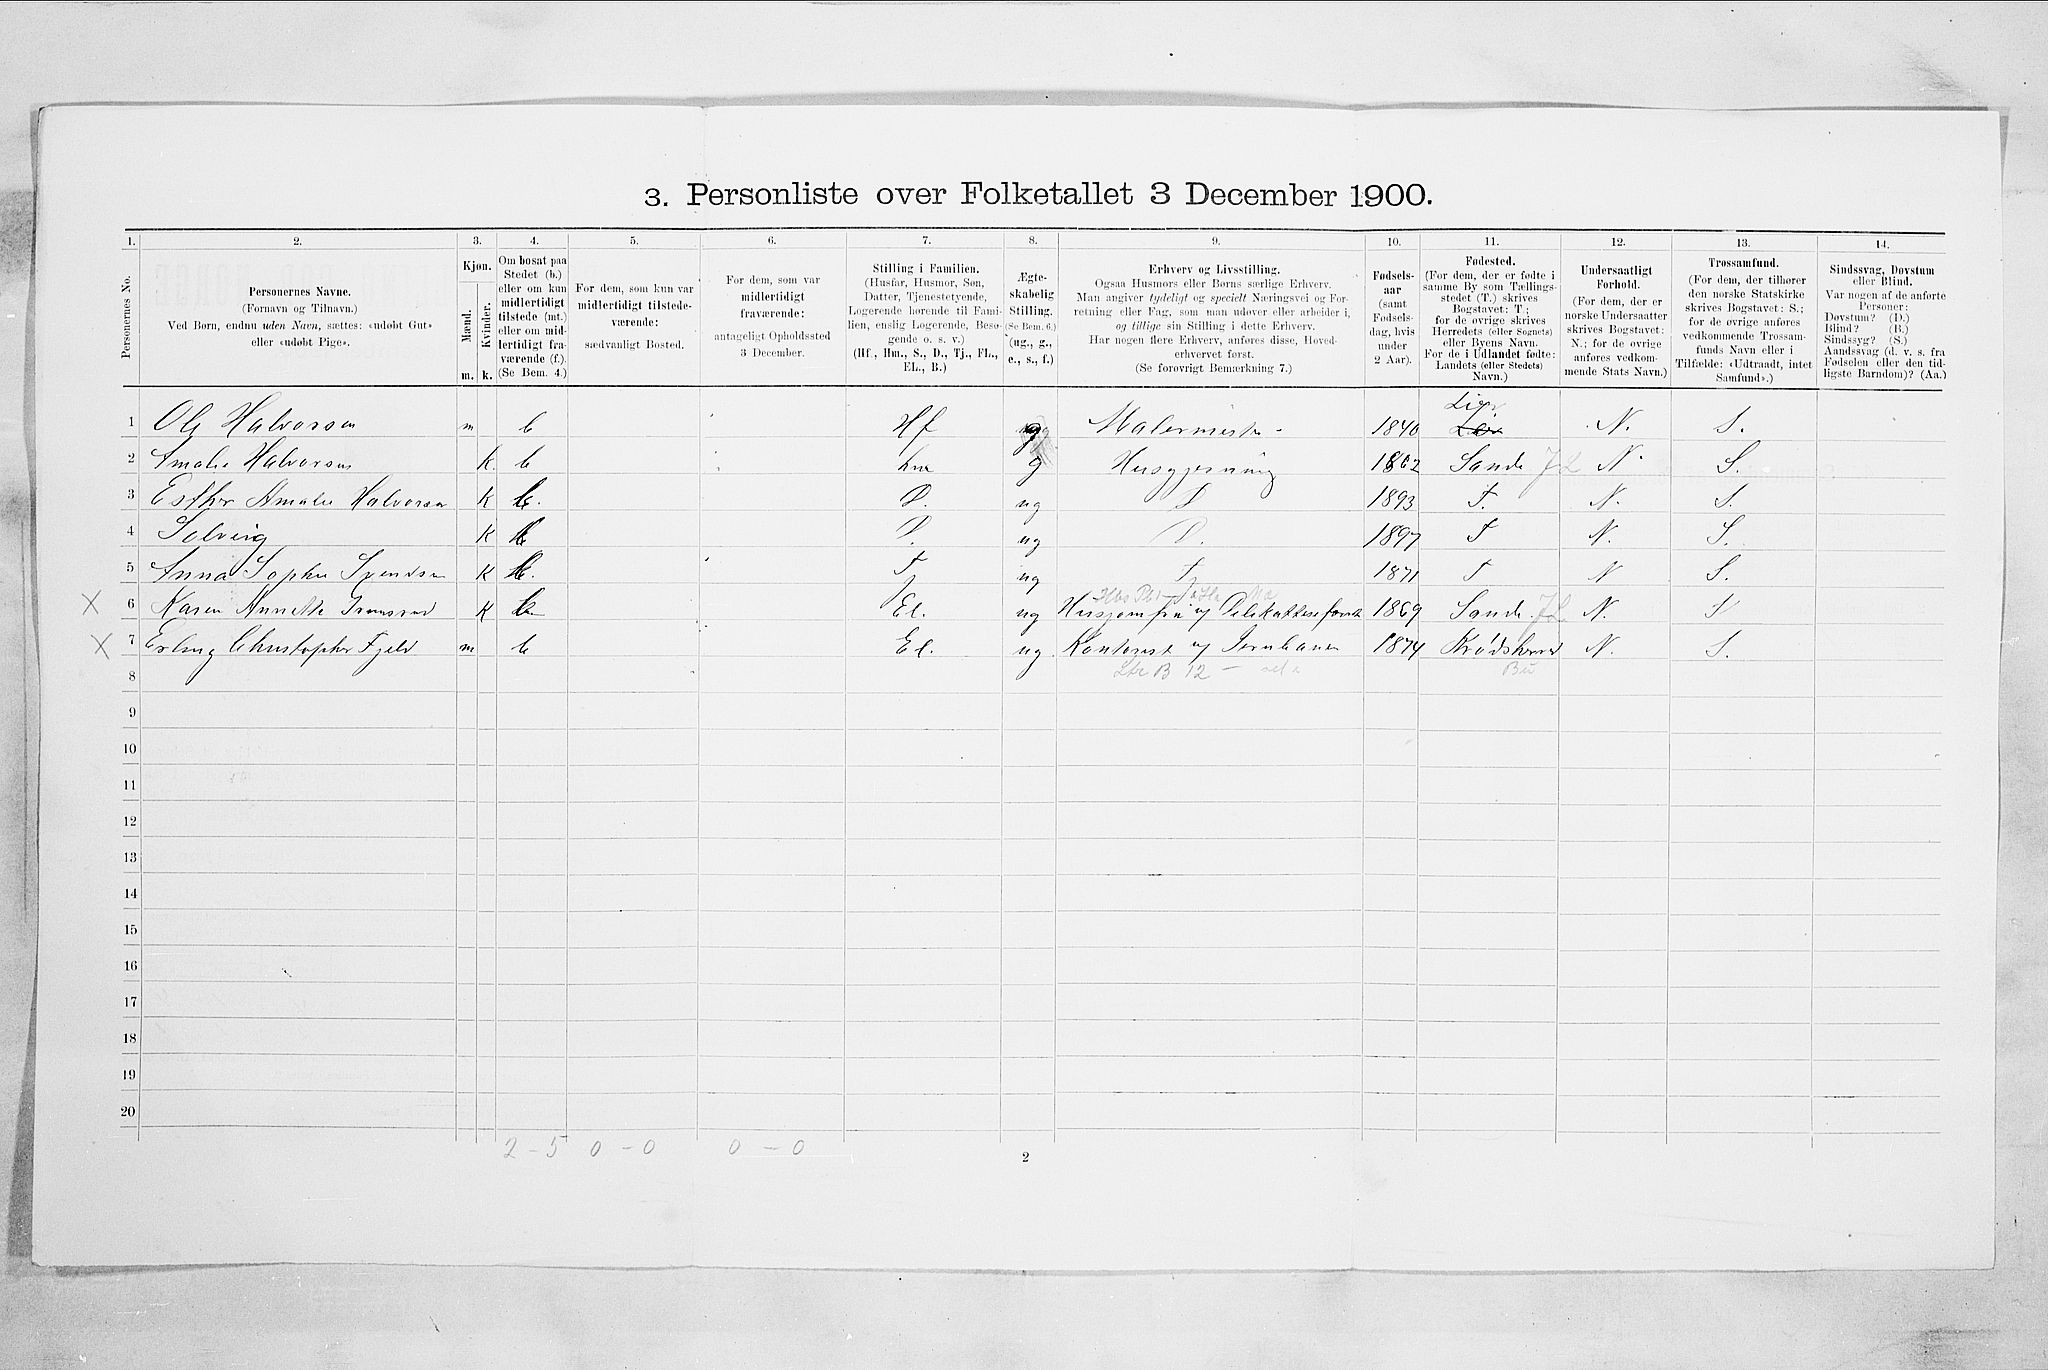 3. Personliste over Folketallet 3 December 1900.
1. 2. 3. 4. 5. 6. 7. 8. 9. 10. 11. 12. 13. 14.
Personernes No.
Personernes Navne.
(Fornavn og Tilnavn.)
Ved Børn, endnu uden Navn, sættes: «udøbt Gut»
eller «udøbt Pige».
Kjøn.
Mænd.
Kvinder.
m. k.
Om bosat paa
Stedet (b.)
eller om kun
midlertidigt
tilstede (mt.)
eller om mid-
lertidigt fra-
værende (f.)
(Se Bem. 4.)
For dem, som kun var
midlertidigt tilstede-
værende:
sædvanligt Bosted.
For dem, som var
midlertidigt
fraværende:
antageligt Opholdssted
3 December.
Stilling i Familien.
(Husfar, Husmor, Søn,
Datter, Tjenestetyende,
Logerende hørende til Fami-
lien, enslig Logerende, Besø-
gende o. s. v.)
(Hf., Hm., S., D., Tj., FL.,
EL., B.)
Ægte-
skabelig
Stilling.
(Se Bem. 6.)
(ug., g.,
e., s., f.)
Erhverv og Livsstilling.
Ogsaa Husmors eller Børns særlige Erhverv.
Man angiver tydeligt og specielt Næringsvei og For-
retning eller Fag, som man udøver eller arbeider i,
og tillige sin Stilling i dette Erhverv.
Har nogen flere Erhverv, anføres disse, Hoved-
erhvervet først.
(Se forøvrigt Bemærkning 7.)
Fødsels-
aar
(samt
Fødsels-
dag, hvis
under
2 Aar).
Fødested.
(For dem, der er fødte i
samme By som Tællings-
stedet (T.) skrives
Bogstavet: T.;
for de øvrige skrives
Herredets (eller Sognets)
eller Byens Navn.
For de i Udlandet fødte:
Landets (eller Stedets)
Navn.)
Undersaatligt
Forhold.
(For dem, der er
norske Undersaatter
skrives Bogstavet:
N.; for de øvrige
anføres vedkom-
mende Stats Navn.)
Trossamfund.
(For dem, der tilhører
den norske Statskirke
skrives Bogstavet: S.;
for de øvrige anføres
vedkommende Trossam-
funds Navn eller i
Tilfælde: «Udtraadt, intet
Samfund».)
Sindssvag, Døvstum
eller Blind.
Var nogen af de anførte
Personer:
Døvstum? (D.)
Blind? (B.)
Sindssyg? (S.)
Aandssvag (d. v. s. fra
Fødselen eller den tid-
ligste Barndom)? (Aa.)
Lier
1 Ole Halvorsen m b Hf g Malermester - 1840 N. S.
2 Amalie Halvorsen K. b hm g Husgjerning 1862 Sande JL N. S.
3 Esther Amalie Halvorsen K b. D. ug D 1893 T. N. S.
4 Solveig K b D. ug D. 1897 T N. S.
5 Anna Sophie Svendsen K b. Tj ug Tj 1871 T N S.
6 Karen Annette K b El. ug Husjomfru og 1869 Sande JL N. S
7 Erling Christopher Fjeld m b El. ug Kontorist v Jernbanen 1874 Krødsherred N. S.
B 12 - Bu
8
9
10
11
12
13
14
15
16
17
18
19
20
2 - 5 0 - 0 0 - 0
2